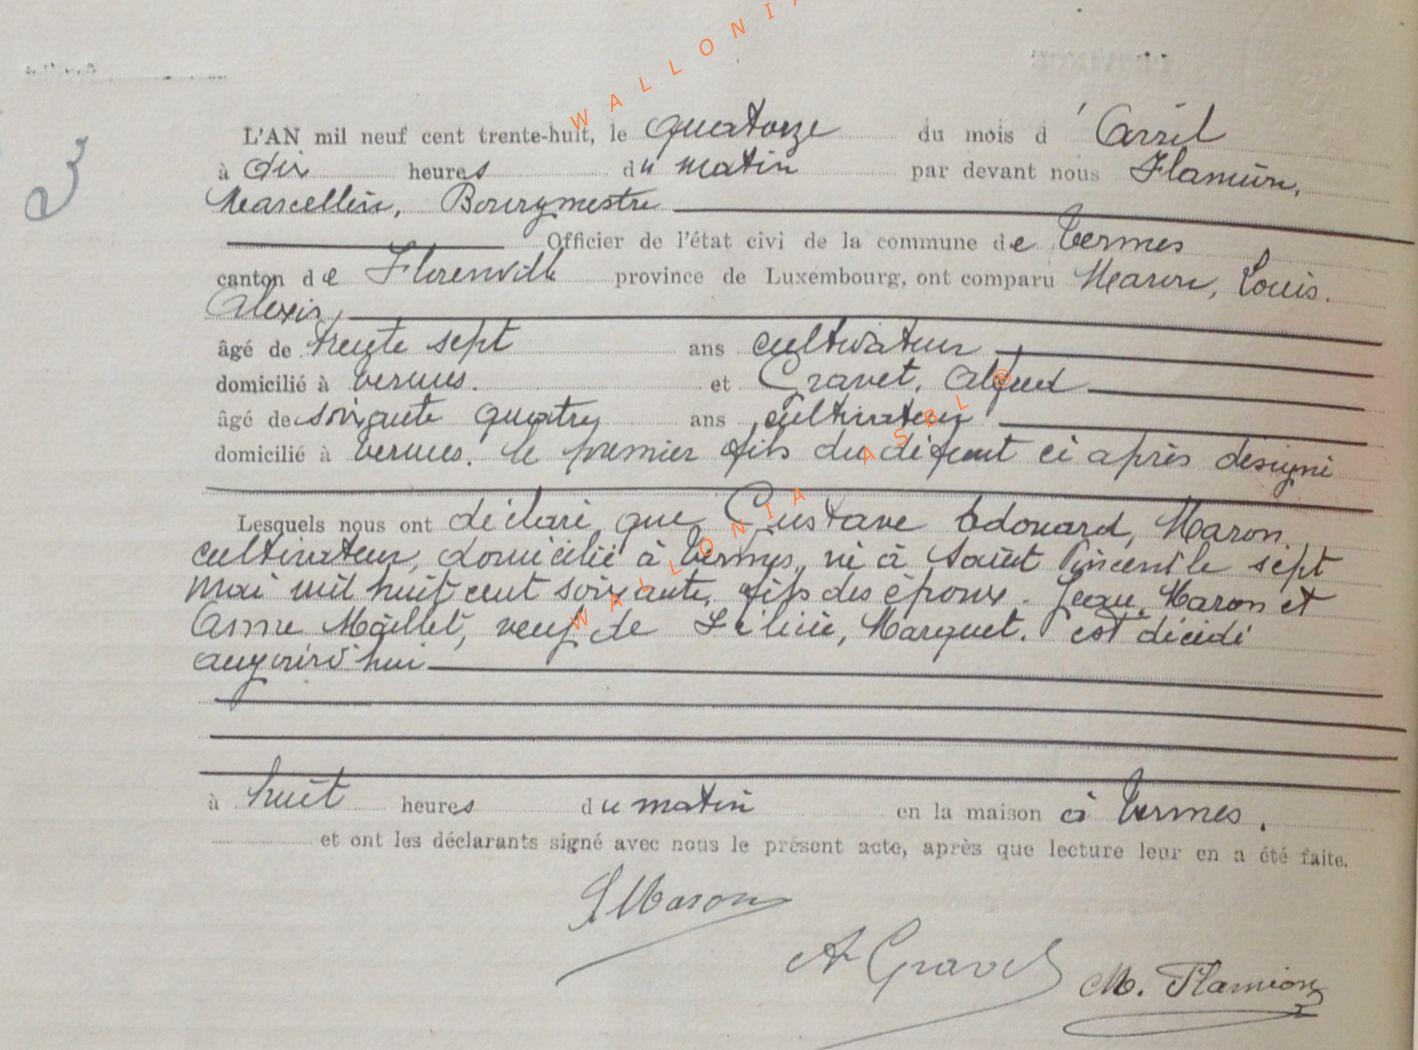 WALLONIA
L'AN mil neuf cent trente-huit, le quatorze du mois d'Avril
à dix heures du matin par devant nous Flamion,
Marcellin, Bourgmestre
Officier de l'état civi de la commune de Termes
canton de Florenville province de Luxembourg, ont comparu Maron, Louis.
Alexis,
âgé de trente sept ans cultivateur
domicilié à Termes. et Gravet, Alfred
âgé de soixante quatre ans cultivateur
domicilié à Termes. le premier fils du défunt ci après désigné
Lesquels nous ont déclaré que Gustave Edouard, Maron.
cultivateur, domicilié à Termes, né à Saint Vincent le sept
mai mil huit cent soixante, fils des époux. Jean, Maron et
Anne Maillet, veuf de Félicie, Marquet. est décédé
aujourd'hui
à huit heures du matin en la maison à Termes.
et ont les déclarants signé avec nous le présent acte, après que lecture leur en a été faite.
WALLONIA ASBL ®
LMaron
A Gravet
M. Flamion